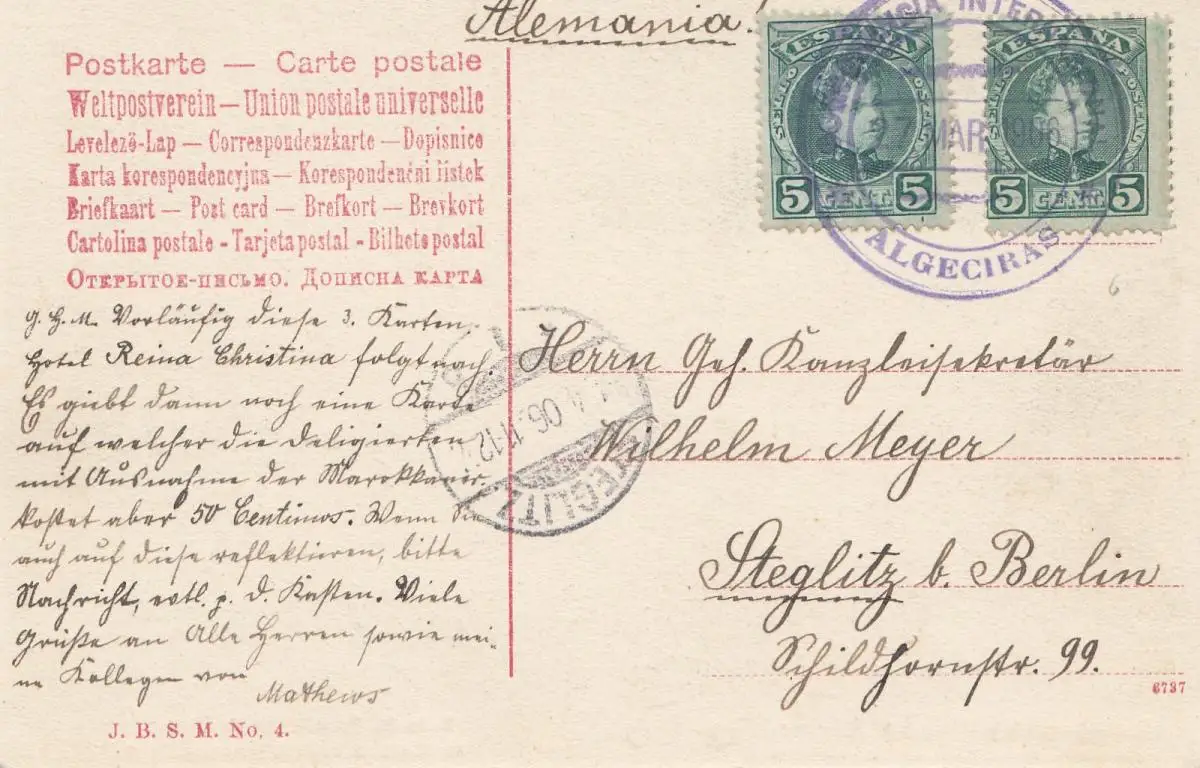 Alemania!
Postkarte — Carte postale
Weltpostverein — Union postale universelle
Levelezö-Lap — Correspondenzkarte — Dopisnice
Karta korespondencyjna — Korespondenčni listek
Briefkaart — Post card — Brefkort — Brevkort
Cartolina postale - Tarjeta postal - Bilhete postal
Открытое-письмо. Дописна карта
ESPAÑA
5 CENT. 5
ESPAÑA
5 CENT. 5
MAR 1906
ALGECIRAS
6
G. H. M. Vorläufig diese 3. Karten,
Hotel Reina Christina folgt nach.
Es giebt dann noch eine Karte
auf welcher die Deligierten
mit Ausnahme der Marokkaner,
kostet aber 50 Centimos. Wenn Sie
auch auf diese reflektieren, bitte
Nachricht, evtl. p. d. Kasten. Viele
Grüße an Alle Herren sowie mei-
ne Kollegen von
Mathews
Herrn Geh. Kanzleisekretär
Wilhelm Meyer
Steglitz b. Berlin
Schildhornstr. 99.
STEGLITZ
4.06.11-12
6737
J. B. S. M. No. 4.